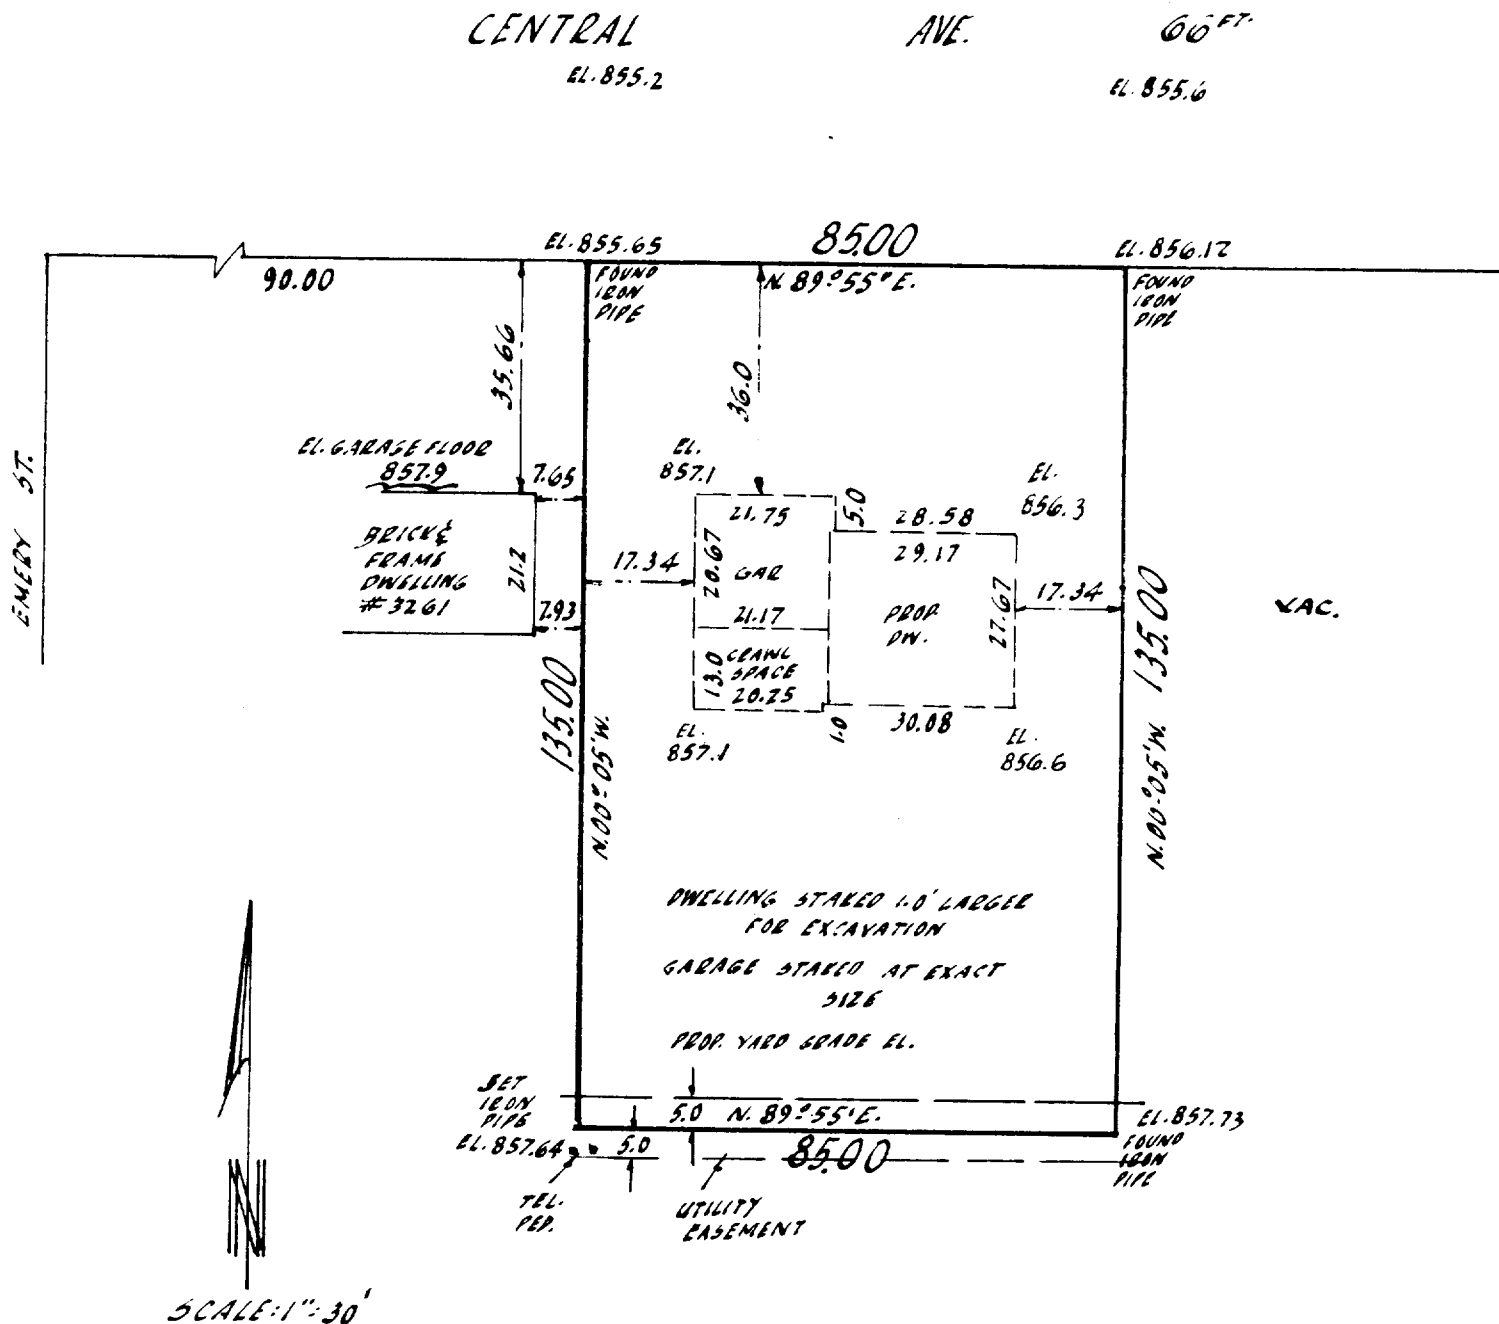 CENTRAL AVE. 66 FT.
EL. 855.2
EL. 855.6
EL. 855.65
85.00
EL. 856.12
90.00
FOUND
IRON
PIPE
N. 89°55" E.
FOUND
IRON
PIPE
35.66
36.0
EMERY ST.
EL. GARAGE FLOOR
857.9
7.65
EL.
857.1
EL.
856.3
21.75
5.0
28.58
29.17
BRICK &
FRAME
DWELLING
#3261
21.2
7.93
17.34
20.67
GAR
21.17
PROP.
DW.
27.67
17.34
VAC.
13.0
CRAWL
SPACE
20.25
1.0
30.08
EL.
857.1
EL.
856.6
135.00
N. 00°05' W.
135.00
N. 00°05' W.
DWELLING STAKED 1.0' LARGER
FOR EXCAVATION
GARAGE STAKED AT EXACT
SIZE
PROP. YARD GRADE EL.
SET
IRON
PIPE
EL. 857.64
5.0
N. 89°55' E.
EL. 857.73
FOUND
IRON
PIPE
5.0
85.00
TEL.
PED.
UTILITY
EASEMENT
N
SCALE: 1" = 30'